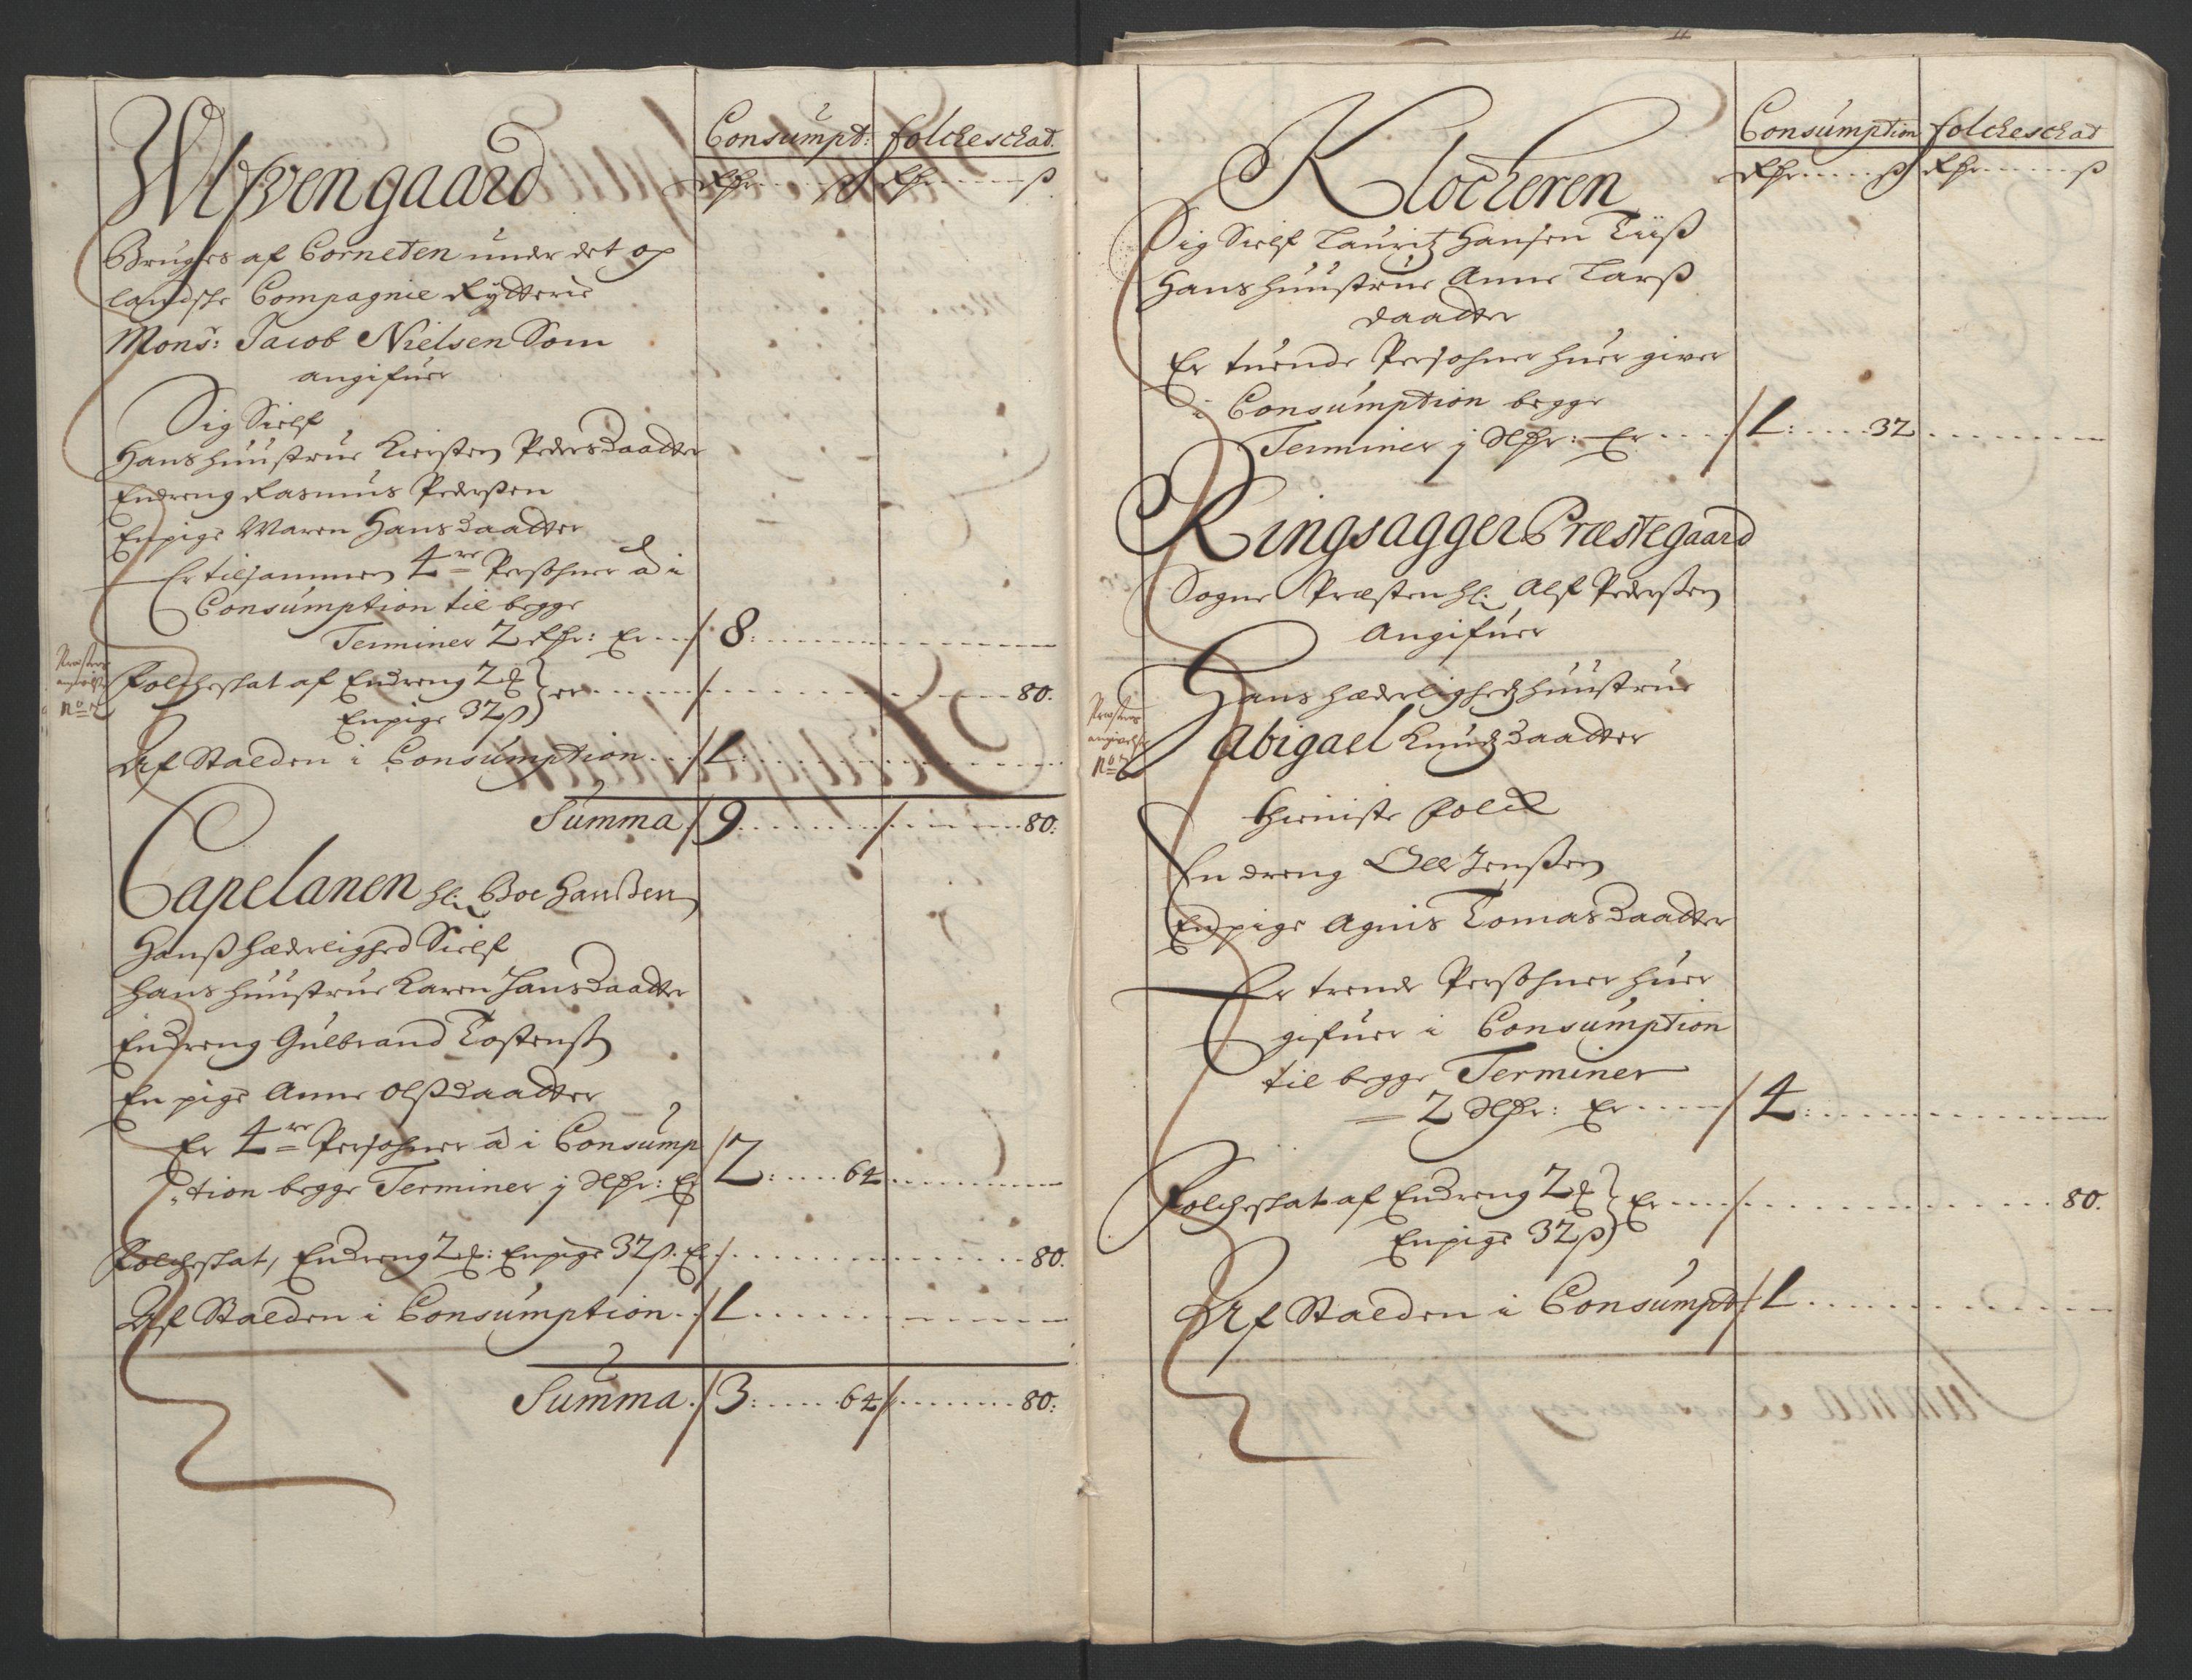 Consumpt: folckeschat.
Rdr ß Rdr ß
Ulfvengaard
Bruges af Corneten under det op
landske Compagnie Rytterie
Monsr: Jacob Nielsen Som
angifuer
Sig Sielf
Hans huustrue Kiersten Pedersdaatter
En dreng Rasmus Pederßen
En pige Maren Hansdaatter
Er tilsammen 4re Persohner â i
Consumption til begge
Terminer 2 Rdr: Er 8:
Præstens
No 2
Folcheskat af En dreng 2 𝓂 } er 80.
En pige 32 ß
Af Stalden i Consumption 1:
Summa 9 80:
Capelanen Hr: Boe Hanßen
Hanß hæderlighed Sielf
Hans huustrue Karen Hansdaatter
En dreng Gulbrand Tostenß
En pige Anne Olßdaatter
Er 4re Persohner â i Consump
tion begge Terminer j Rdr: Er 2: 64
Folcheskat, En dreng 2 𝓂: En pige 32 ß. Er 80.
Af Stalden i Consumption 1
Summa 3: 64 80:
Consumption folckeschat
Rdr ß Rdr ß
Klockeren
Sig Sielf Lauritz Hansen Tiiß
Hans huustrue Anne Larß
daatter
Er tuende Persohner huer giver
i Consumption begge
Terminer j Rdr: Er 1: 32
Ringsagger Præstegaard
Sogne Præsten Hr: Alf Pederßen
Angifuer
Præstens
No 2
Hans hæderligheds huustrue
Abigael Knudsdaatter
Thieniste Folck
En dreng Olle Jenßen
En pige Agnis Tomasdaatter
Er trende Persohner huer
gifuer i Consumption
til begge Terminer
2 Rdr: Er 4:
Folcheskat af En dreng 2 𝓂 } Er 80.
En pige 32 ß
Af Stalden i Consumpt 1